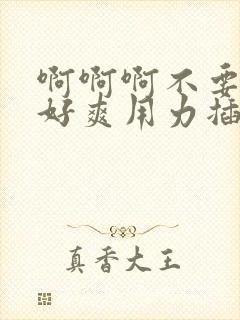 啊啊啊不要
好爽用力插
真香大王